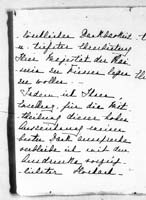 tarblichen Dankbarkeit
u. tiefster Ehrerbietung
Ihrer Majestät der Kai
serin zu Füssen legen
zu wollen. —
Indem ich Ihnen,
für die Mit
theilung dieser hohen
Auszeichnung meinen
besten Dank ausspreche
verbleibe ich mit dem
Ausdrucke vorzüg
lichster Hochach